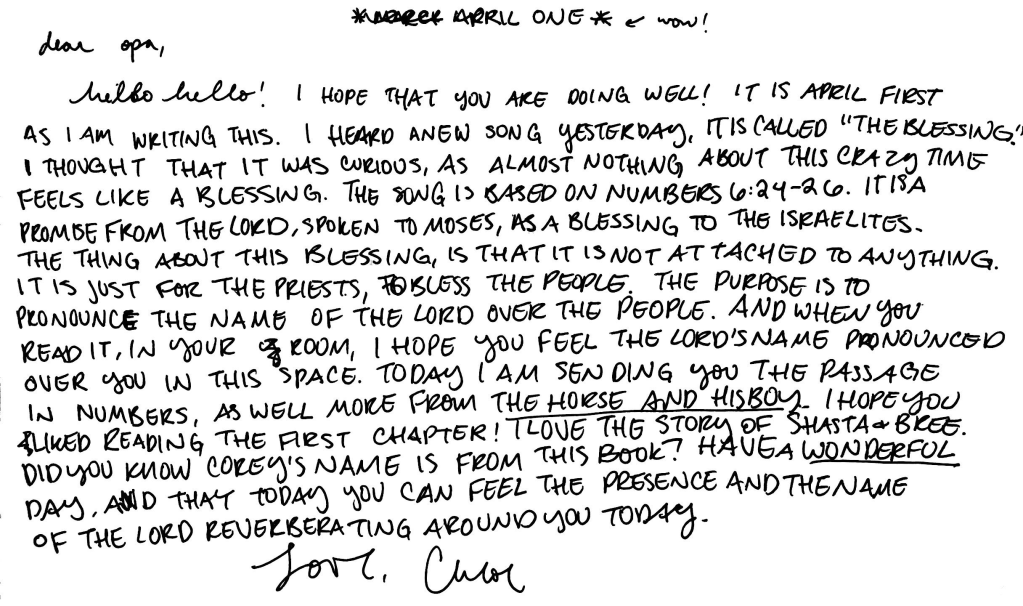 * APRIL ONE * ← wow!
dear opa,
hello hello! I HOPE THAT YOU ARE DOING WELL! IT IS APRIL FIRST
AS I AM WRITING THIS. I HEARD A NEW SONG YESTERDAY, IT IS CALLED "THE BLESSING."
I THOUGHT THAT IT WAS CURIOUS, AS ALMOST NOTHING ABOUT THIS CRAZY TIME
FEELS LIKE A BLESSING. THE SONG IS BASED ON NUMBERS 6:24-26. IT IS A
PROMISE FROM THE LORD, SPOKEN TO MOSES, AS A BLESSING TO THE ISRAELITES.
THE THING ABOUT THIS BLESSING, IS THAT IT IS NOT ATTACHED TO ANYTHING.
IT IS JUST FOR THE PRIESTS, TO BLESS THE PEOPLE. THE PURPOSE IS TO
PRONOUNCE THE NAME OF THE LORD OVER THE PEOPLE. AND WHEN YOU
READ IT, IN YOUR ROOM, I HOPE YOU FEEL THE LORD'S NAME PRONOUNCED
OVER YOU IN THIS SPACE. TODAY I AM SENDING YOU THE PASSAGE
IN NUMBERS, AS WELL MORE FROM THE HORSE AND HIS BOY. I HOPE YOU
LIKED READING THE FIRST CHAPTER! I LOVE THE STORY OF SHASTA & BREE.
DID YOU KNOW COREY'S NAME IS FROM THIS BOOK? HAVE A WONDERFUL
DAY, AND THAT TODAY YOU CAN FEEL THE PRESENCE AND THE NAME
OF THE LORD REVERBERATING AROUND YOU TODAY.
Love, Chloe